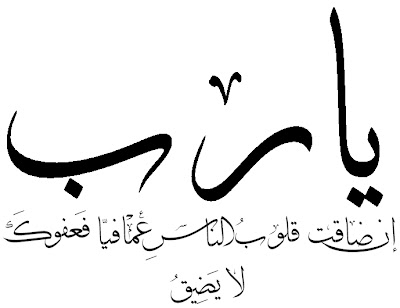 يا رب
إن ضاقت قلوبُ الناس عِمّا فيّا فعفوكَ
لا يَضِيقُ